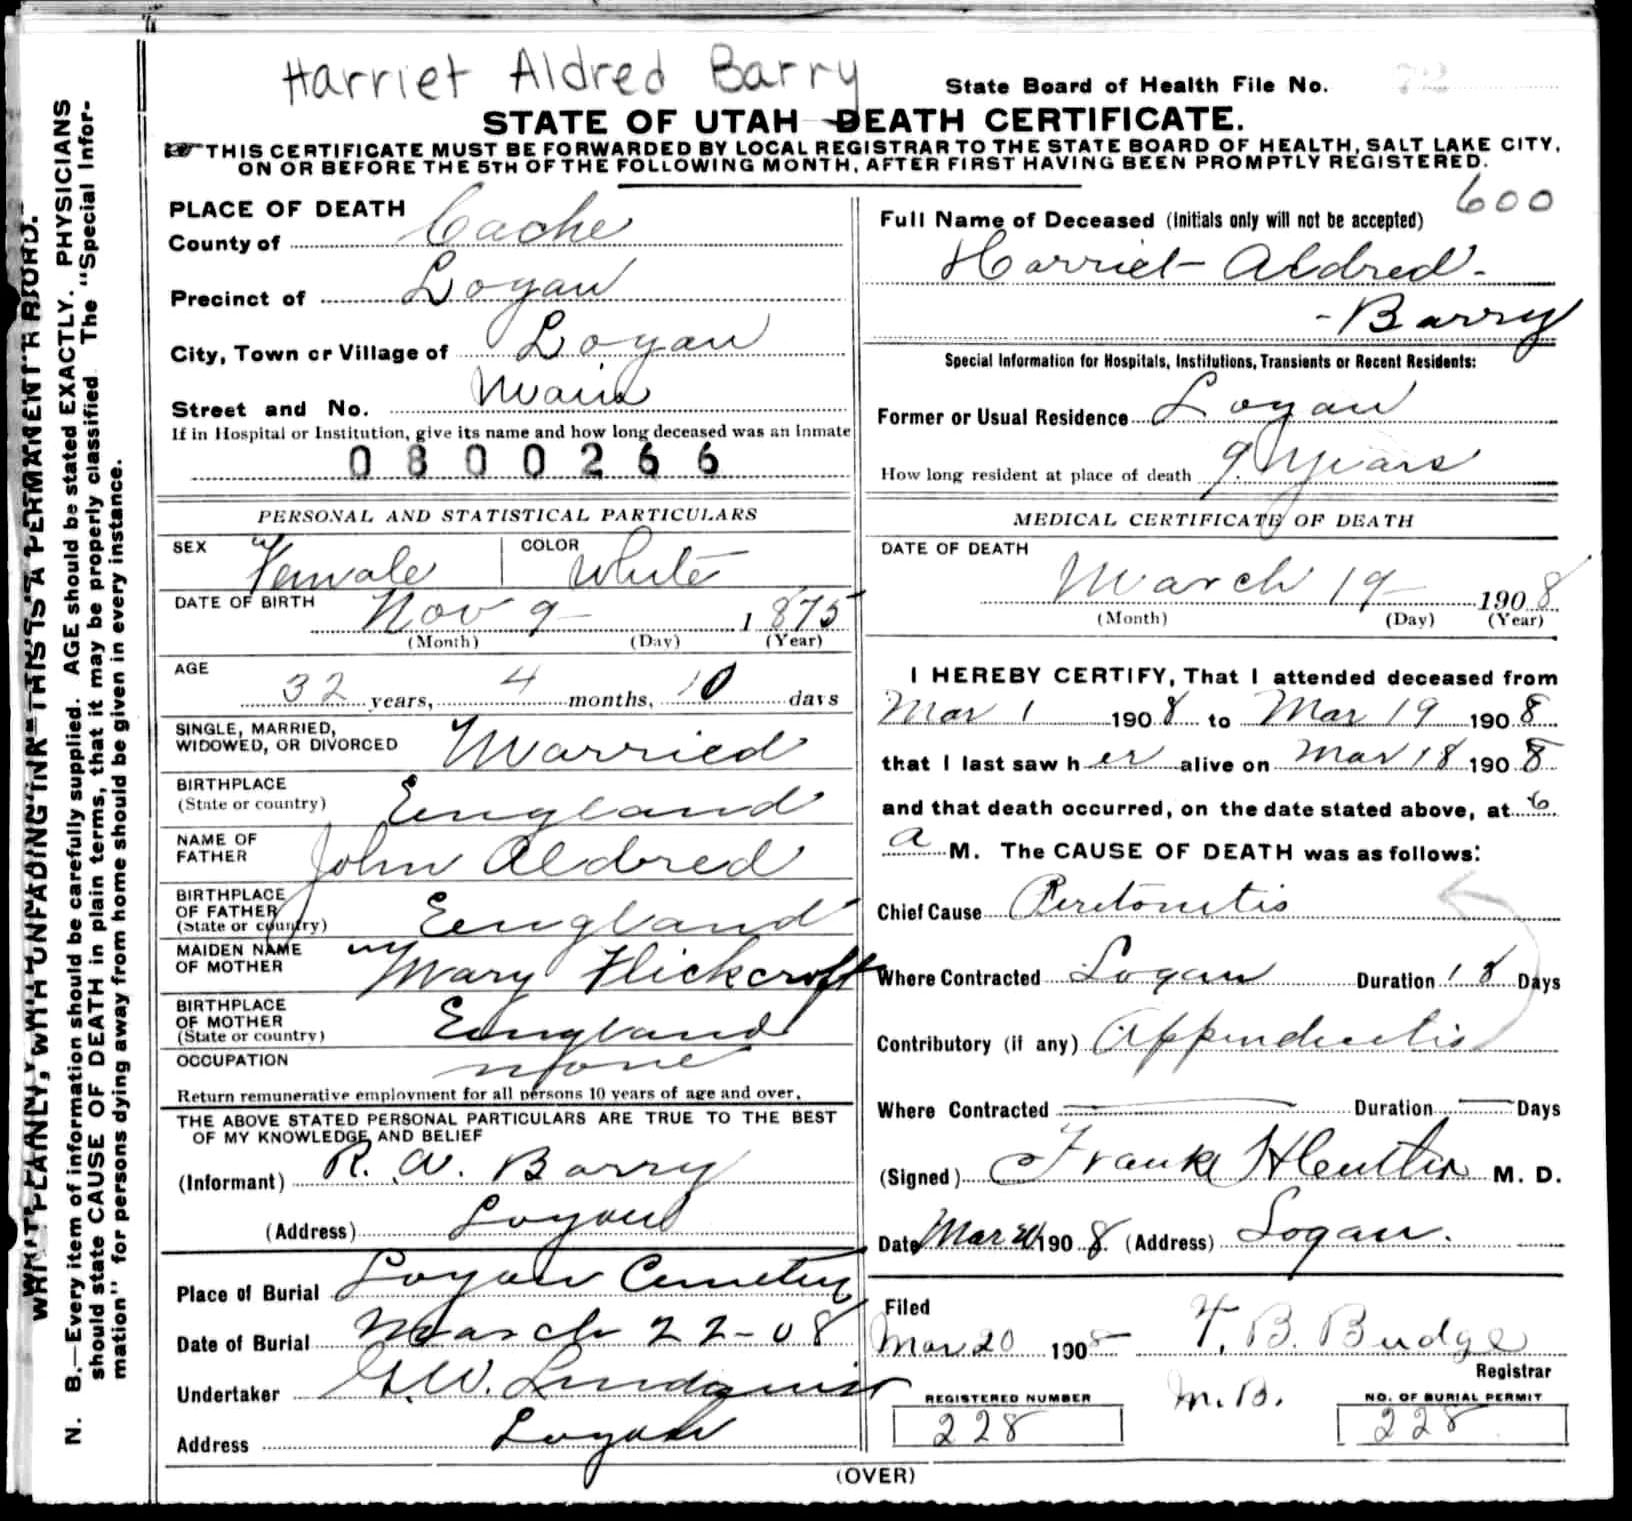 Harriet Aldred Barry
State Board of Health File No.
STATE OF UTAH DEATH CERTIFICATE.
THIS CERTIFICATE MUST BE FORWARDED BY LOCAL REGISTRAR TO THE STATE BOARD OF HEALTH, SALT LAKE CITY,
ON OR BEFORE THE 5TH OF THE FOLLOWING MONTH, AFTER FIRST HAVING BEEN PROMPTLY REGISTERED.
WRITE PLAINLY, WITH UNFADING INK—THIS IS A PERMANENT RECORD.
N. B.—Every item of information should be carefully supplied. AGE should be stated EXACTLY. PHYSICIANS
should state CAUSE OF DEATH in plain terms, that it may be properly classified The "Special Infor-
mation" for persons dying away from home should be given in every instance.
PLACE OF DEATH
County of Cache
Precinct of Logan
City, Town or Village of Logan
Street and No. Main
If in Hospital or Institution, give its name and how long deceased was an inmate
0800266
PERSONAL AND STATISTICAL PARTICULARS
SEX Female COLOR White
DATE OF BIRTH Nov 9 1875
(Month) (Day) (Year)
AGE
32 years, 4 months, 10 days
SINGLE, MARRIED,
WIDOWED, OR DIVORCED Married
BIRTHPLACE
(State or country) England
NAME OF
FATHER John Aldred
BIRTHPLACE
OF FATHER
(State or country) England
MAIDEN NAME
OF MOTHER Mary Flickcroft
BIRTHPLACE
OF MOTHER
(State or country) England
OCCUPATION none
Return remunerative employment for all persons 10 years of age and over.
THE ABOVE STATED PERSONAL PARTICULARS ARE TRUE TO THE BEST
OF MY KNOWLEDGE AND BELIEF
(Informant) R. W. Barry
(Address) Logan
Place of Burial Logan Cemetery
Date of Burial March 22-08
Undertaker G.W. Lindquist
Address Logan
600
Full Name of Deceased (Initials only will not be accepted)
Harriet Aldred-
-Barry
Special Information for Hospitals, Institutions, Transients or Recent Residents:
Former or Usual Residence Logan
How long resident at place of death 9 years
MEDICAL CERTIFICATE OF DEATH
DATE OF DEATH
March 19 1908
(Month) (Day) (Year)
I HEREBY CERTIFY, That I attended deceased from
Mar 1 1908 to Mar 19 1908
that I last saw her alive on Mar 18 1908
and that death occurred, on the date stated above, at 6
a M. The CAUSE OF DEATH was as follows:
Chief Cause Peritonitis
Where Contracted Logan Duration 18 Days
Contributory (if any) Appendicitis
Where Contracted Duration Days
(Signed) Frank M. D.
Date Mar 1908. (Address) Logan.
Filed
Mar 20 1908 T. B. Budge
Registrar
M.B.
REGISTERED NUMBER
228
NO. OF BURIAL PERMIT
228
(OVER)